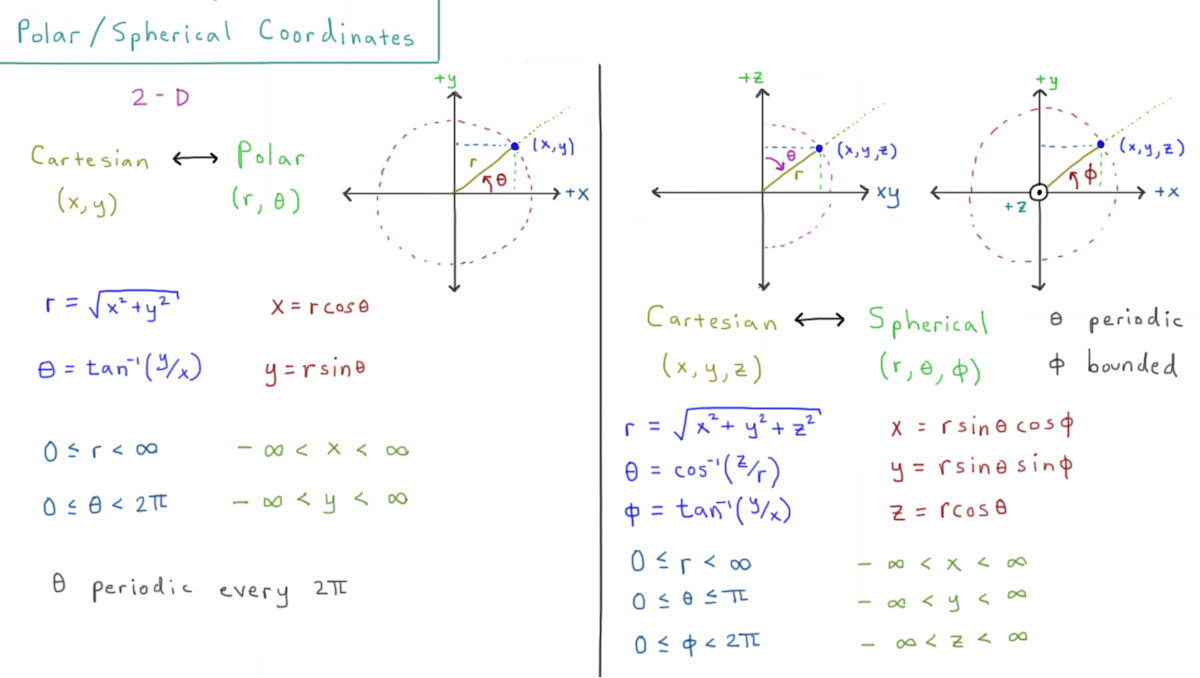 Polar / Spherical Coordinates
2 - D
Cartesian ⟷ Polar
(x, y) (r, θ)
+y
(x, y)
r
θ
+x
r = √(x² + y²) x = r cos θ
θ = tan⁻¹(y/x) y = r sin θ
0 ≤ r < ∞ - ∞ < x < ∞
0 ≤ θ < 2π - ∞ < y < ∞
θ periodic every 2π
+z
θ
(x, y, z)
r
xy
+y
(x, y, z)
ϕ
+x
+z
Cartesian ⟷ Spherical θ periodic
(x, y, z) (r, θ, ϕ) ϕ bounded
r = √(x² + y² + z²) x = r sin θ cos ϕ
θ = cos⁻¹(z/r) y = r sin θ sin ϕ
ϕ = tan⁻¹(y/x) z = r cos θ
0 ≤ r < ∞ - ∞ < x < ∞
0 ≤ θ ≤ π - ∞ < y < ∞
0 ≤ ϕ < 2π - ∞ < z < ∞